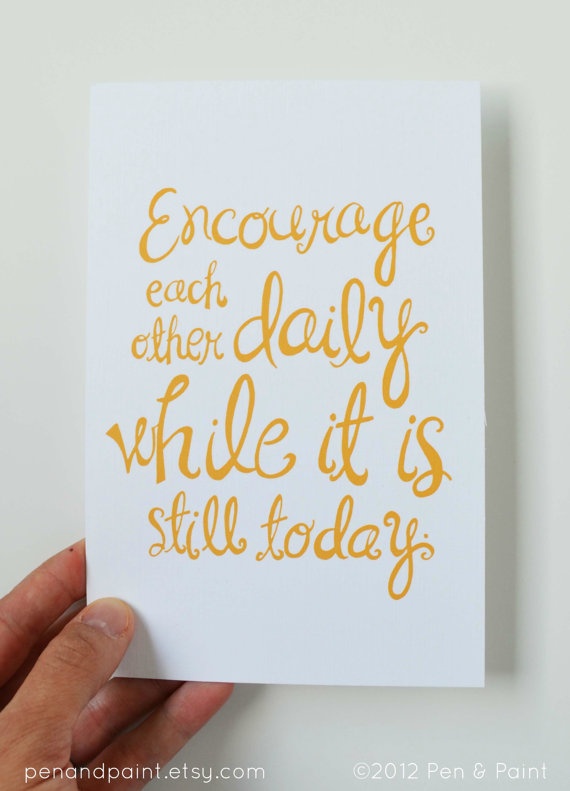 Encourage
each
other daily
while it is
still today.
penandpaint.etsy.com ©2012 Pen & Paint